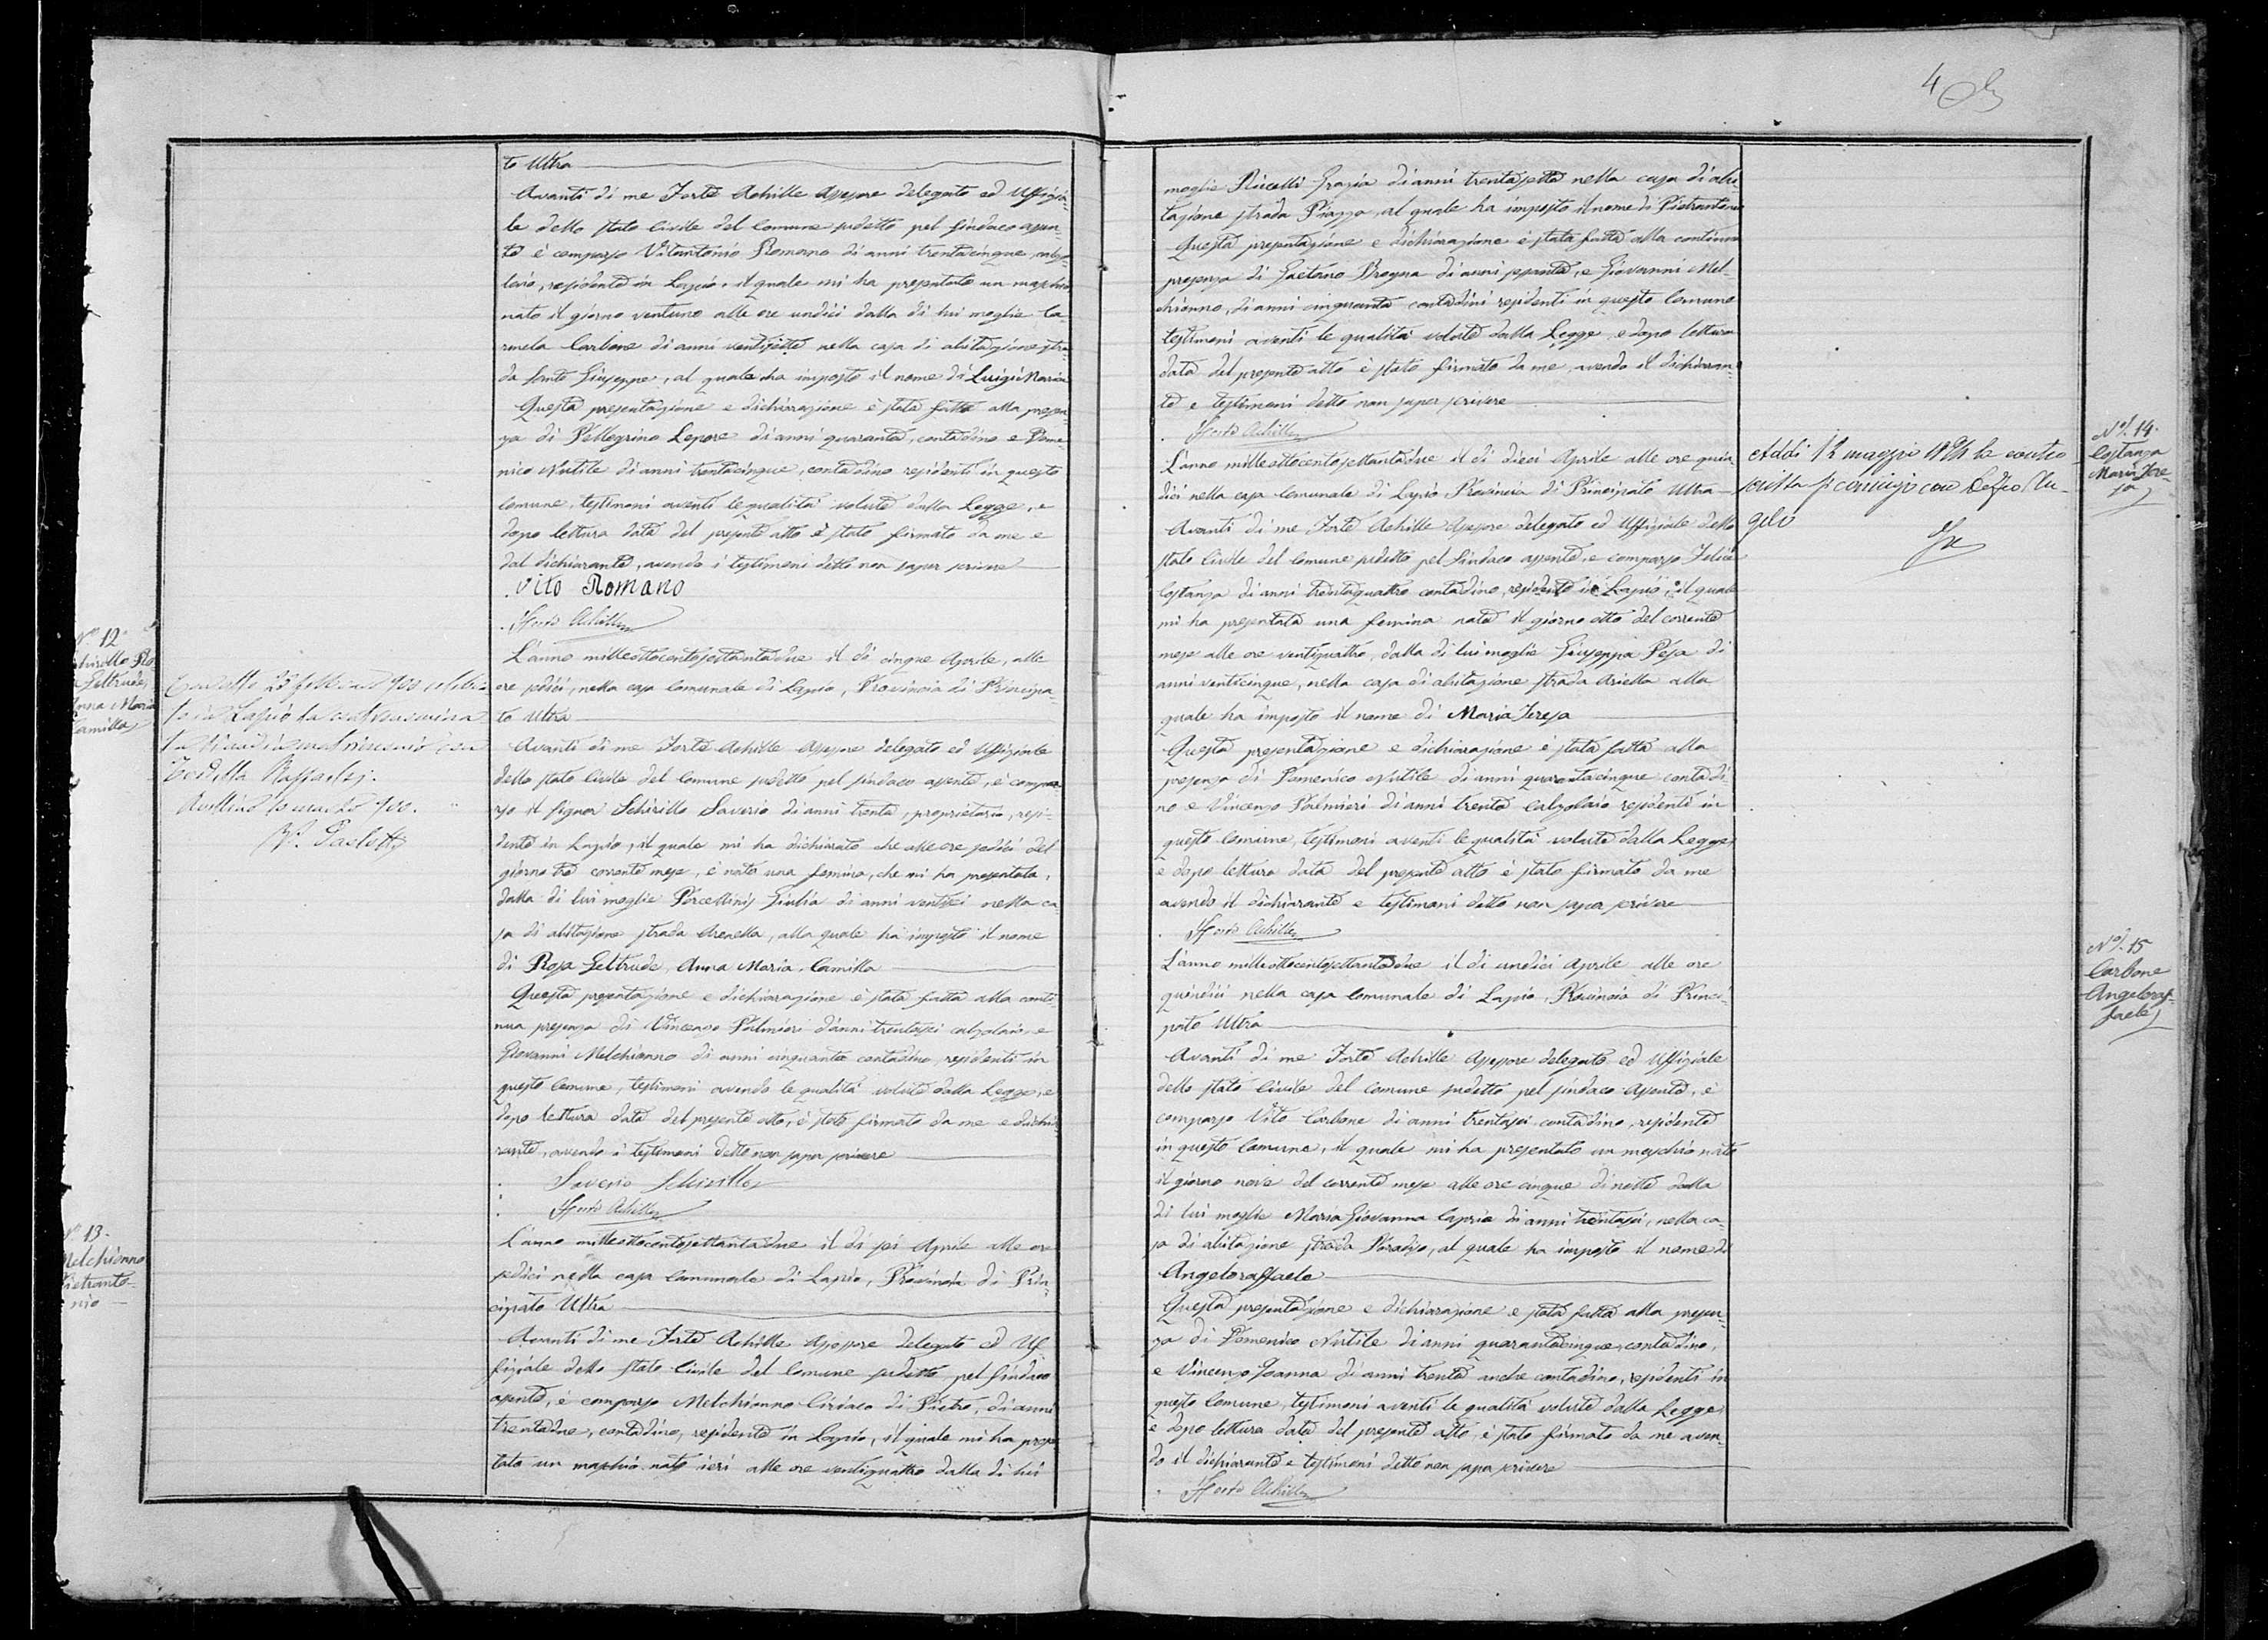 to Ultra
Avanti di me Forte Achille Assessore delegato ed Uffizia-
le dello stato Civile del Comune sudetto pel Sindaco assen-
te è comparso Vitantonio Romano di anni trentacinque, calzo-
laio, residente in Lapio, il quale mi ha presentato un maschio
nato il giorno ventuno alle ore undici dalla di lui moglie Ca-
rmela Carbone di anni ventisette nella casa di abitazione stra-
da Santo Giuseppe, al quale ha imposto il nome di Luigi Maria
Questa presentazione e dichiarazione è stata fatta alla presen-
za di Pellegrino Lepore di anni quaranta, contadino e Dome-
nico Nutile di anni trentacinque, contadino residenti in questo
Comune, testimoni aventi le qualità volute dalla Legge, e
dopo lettura data del presente atto è stato firmato da me e
dal dichiarante, avendo i testimoni detto non saper scrivere
Vito Romano
Forte Achille
Nº 12
Schirillo Ro
Geltrude,
Anna Maria
Camilla
L'anno milleottocentosettantadue il di cinque Aprile, alle
ore sedici, nella casa Comunale di Lapio, Provincia di Principa-
to Ultra
Avanti di me Forte Achille Assessore delegato ed Uffiziale
dello stato Civile del Comune sudetto pel Sindaco assente, è compar-
so il Signor Schirillo Saverio di anni trenta, proprietario, resi-
dente in Lapio, il quale mi ha dichiarato che alle ore sedici del
giorno tre corrente mese, è nata una femina, che mi ha presentata,
dalla di lui moglie Porcellini Giulia di anni ventisei nella ca-
sa di abitazione strada Arenella, alla quale ha imposto il nome
di Rosa Geltrude, Anna Maria, Camilla
Questa presentazione e dichiarazione è stata fatta alla conti-
nua presenza di Vincenzo Palmieri d'anni trentasei calzolaio, e
Giovanni Melchionno di anni cinquanta contadino, residenti in
questo Comune, testimoni avendo le qualità volute dalla Legge, e
dopo lettura data del presente atto, è stato firmato da me e dichia-
rante, avendo i testimoni detto non saper scrivere
Saverio Schirillo
Forte Achille
in Lapio la
matrimonio con
Raffaele
Avellino
Nº 13.
Melchionno
Pietranto-
nio
L'anno milleottocentosettantadue il di sei Aprile alle ore
sedici nella casa Comunale di Lapio, Provincia di Prin-
cipato Ultra
Avanti di me Forte Achille Assessore delegato ed Uf
fiziale dello stato Civile del Comune sudetto, pel Sindaco
assente, è comparso Melchionno Ciriaco di Pietro, di anni
trentadue, contadino, residente in Lapio, il quale mi ha presen
tato un maschio nato ieri alle ore ventiquattro dalla di lui
4
moglie Riccelli Grazia di anni trentasette nella casa di abi-
tazione strada Piazza, al quale ha imposto il nome di Pietrantonio
Questa presentazione e dichiarazione è stata fatta alla continua
presenza di Gaetano Brogna di anni sessanta, e Giovanni Mel-
chionno, di anni cinquanta contadini residenti in questo Comune
testimoni aventi le qualità volute dalla Legge, e dopo lettura
data del presente atto è stato firmato da me, avendo il dichiaran-
te e testimoni detto non saper scrivere
Forte Achille
L'anno milleottocentosettantadue il di dieci Aprile alle ore quin-
dici nella casa Comunale di Lapio Provincia di Principato Ultra
Avanti di me Forte Achille Assessore delegato ed Uffiziale dello
stato Civile del Comune sudetto pel Sindaco assente, e comparso Felice
Costanza di anni trentaquattro contadino, residente in Lapio, il quale
mi ha presentata una femina nata il giorno otto del corrente
mese alle ore ventiquattro, dalla di lui moglie Giuseppa Pisa di
anni venticinque, nella casa di abitazione strada Ariella alla
quale ha imposto il nome di Maria Teresa
Questa presentazione e dichiarazione è stata fatta alla
presenza di Domenico Nutile di anni quarantacinque contadi-
no e Vincenzo Palmieri di anni trenta Calzolaio residenti in
questo Comune, testimoni aventi le qualità volute dalla Legge
e dopo lettura data del presente atto è stato firmato da me
avendo il dichiarante e testimoni detto non saper scrivere
Forte Achille
Addi 12 maggio la contro
scritta si coniugò con
Nº. 14.
Costanza
Maria Tere-
sa
L'anno milleottocentosettantadue il di undici Aprile alle ore
quindici nella casa Comunale di Lapio, Provincia di Princi-
pato Ultra
Avanti di me Forte Achille Assessore delegato ed Uffiziale
dello stato Civile del Comune sudetto pel Sindaco assente, è
comparso Vito Carbone di anni trentasei contadino, residente
in questo Comune, il quale mi ha presentato un maschio nato
il giorno nove del corrente mese alle ore cinque di notte dalla
di lui moglie Maria Giovanna Caprio di anni trentasei, nella ca-
sa di abitazione strada Paradiso, al quale ha imposto il nome di
Angeloraffaele
Questa presentazione e dichiarazione e stata fatta alla presen-
za di Domenico Nutile di anni quarantacinque, contadino,
e Vincenzo Ioanna di anni trenta anche contadino, residenti in
questo Comune, testimoni aventi le qualità volute dalla Legge
e dopo lettura data del presente atto, è stato firmato da me aven-
do il dichiarante e testimoni detto non saper scrivere
Forte Achille
Nº. 15
Carbone
Angeloraf-
faele